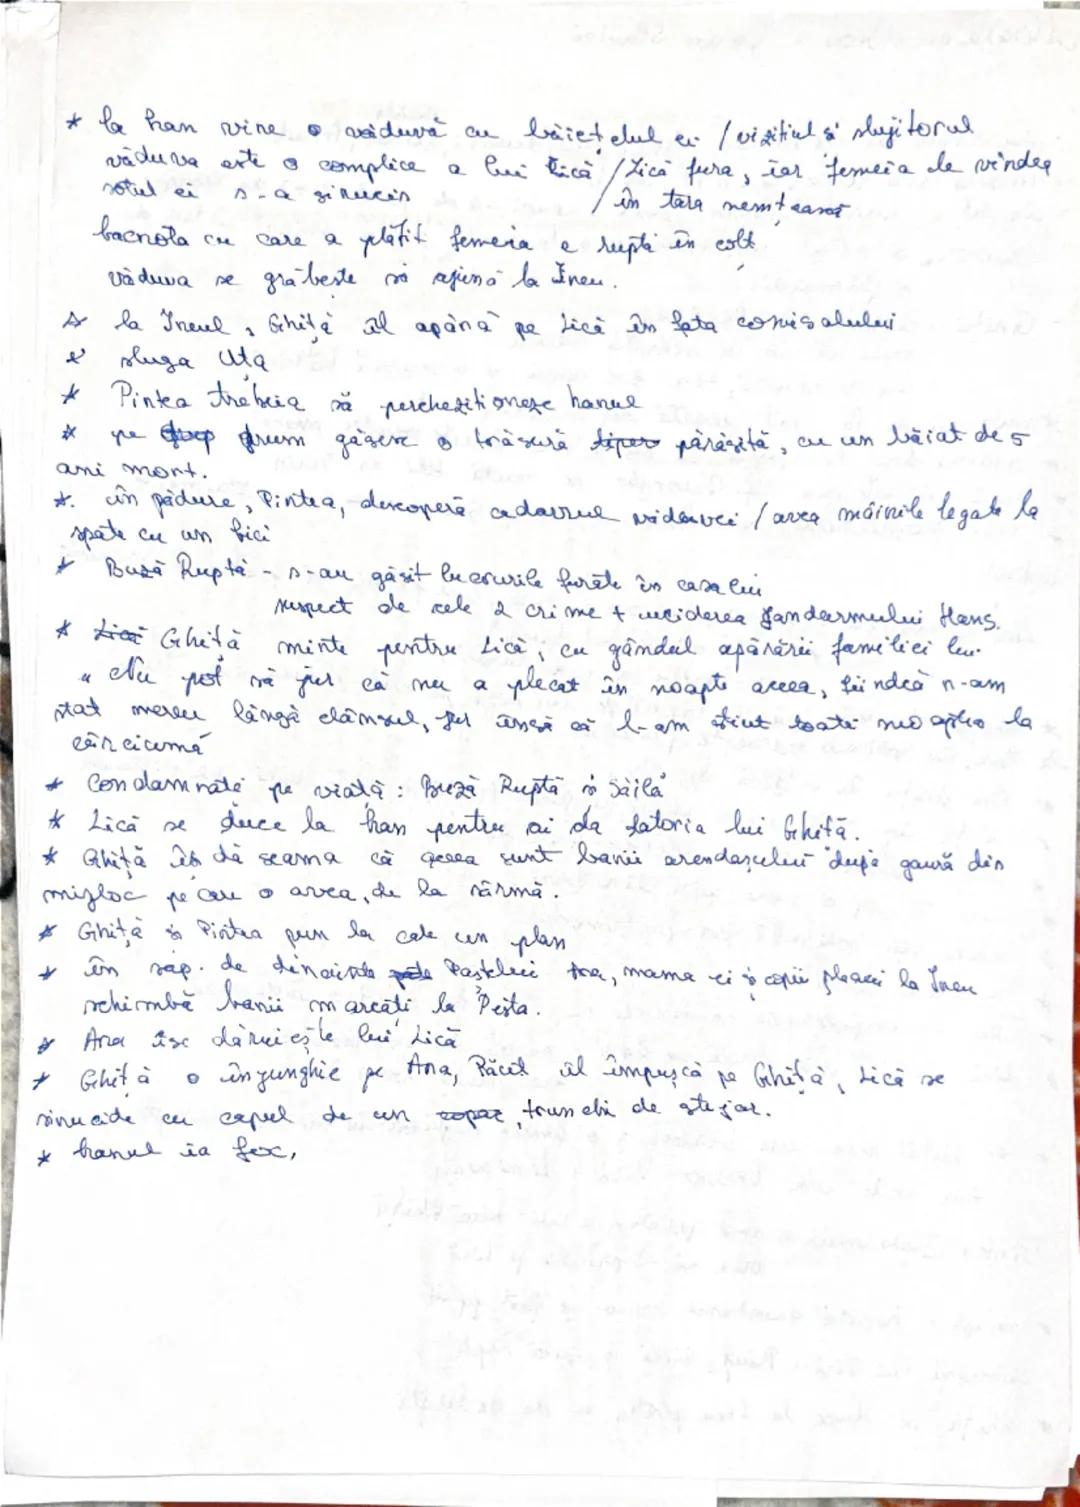 * la han vine o văduvă cu băiețelul ei / vizitiul și slujitorul
văduva este o complice a lui Lică / Lică fura, iar femeia le vindea
soțul ei s-a sinucis / în țara nemțească
bacnota cu care a plătit femeia e ruptă în colț
văduva se grăbește să ajungă la Ineu.
* la Ineul, Ghiță îl apără pe Lică în fața comisarului
* sluga Uța
* Pintea trebuia să perchezitioneze hanul
* pe drum găsesc o trăsură părăsită, cu un băiat de 5
ani mort.
*. în pădure, Pintea, descoperă cadavrul văduvei / avea mâinile legate la
spate cu un bici
* Buză Ruptă - s-au găsit lucrurile furate în casa lui
suspect de cele 2 crime + uciderea jandarmului Hans.
* Lică Ghiță minte pentru Lică, cu gândul apărării familiei lui.
" Nu pot să jur că nu a plecat în noapte aceea, fiindcă n-am
stat mereu lângă dânsul, jur însă că l-am știut toată noaptea la
cârciumă
* Condamnați pe viață: Buză Ruptă și Săilă
* Lică se duce la han pentru ai da datoria lui Ghiță.
* Ghiță își dă seama că aceea sunt banii arendașului după gaură din
mijloc pe care o avea, de la sârmă.
* Ghiță și Pintea pun la cale un plan
* în săp. de dinainte Paștelui Ana, mama ei și copii pleacă la Ineu
schimbă banii marcați la Pesta.
* Ana îse dăruiește lui Lică
* Ghiță o înjunghie pe Ana, Răcit îl împușcă pe Ghiță, Lică se
sinucide cu capul de un copac trunchi de stejar.
* hanul ia foc,